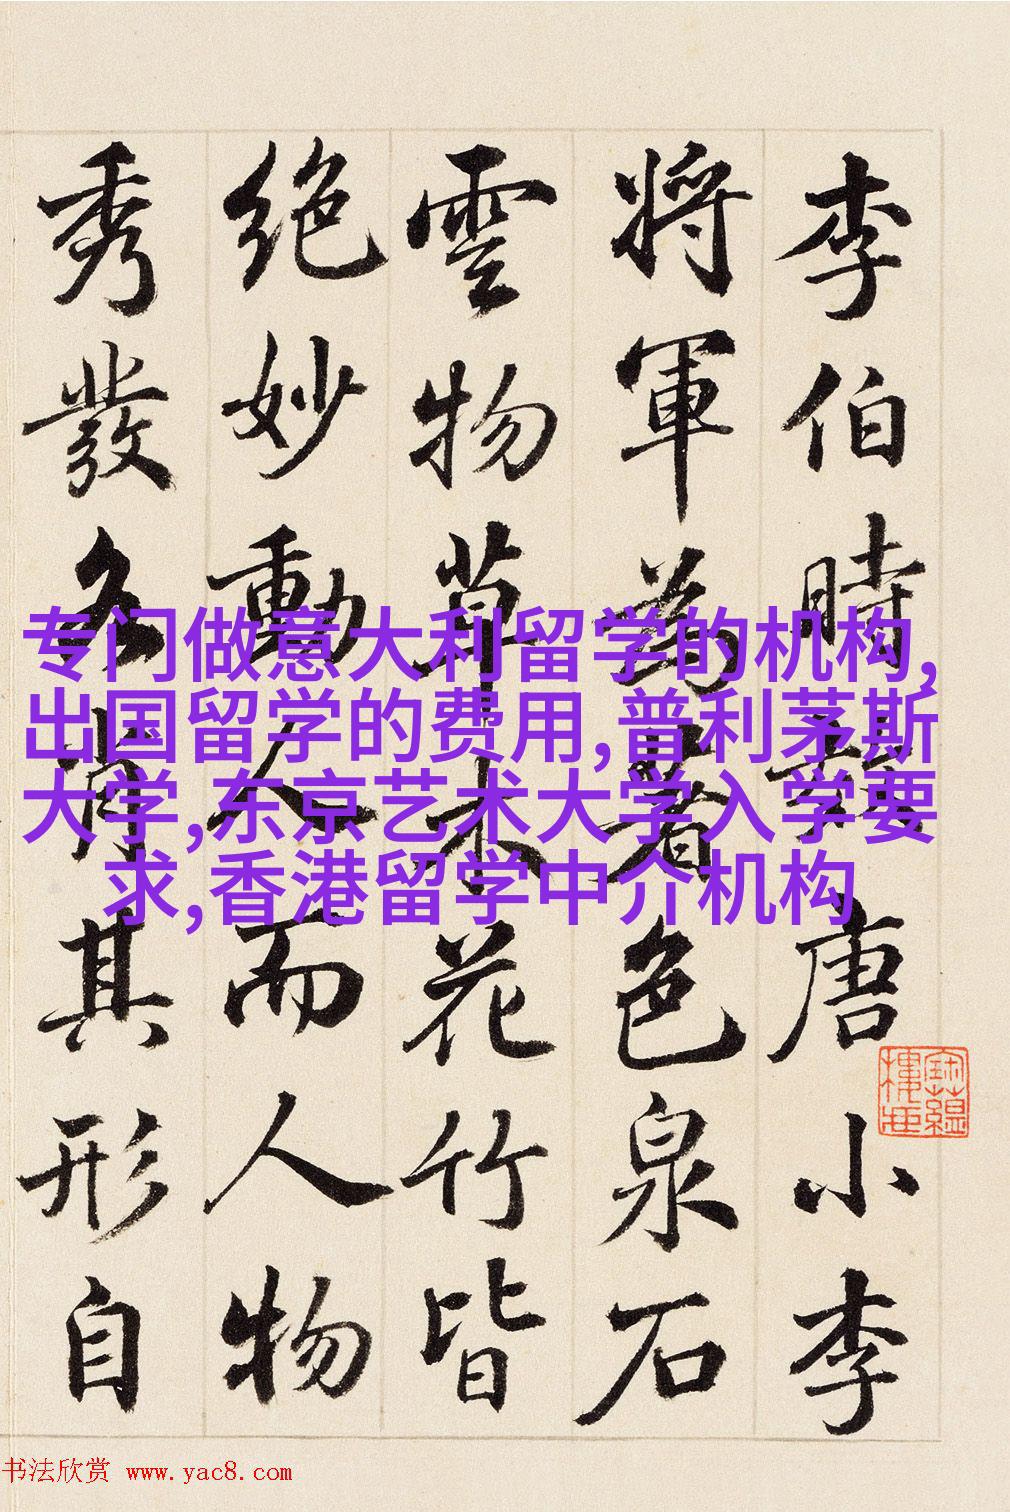 李伯時効唐小李
將軍為着色泉石
雲物草木花竹皆
絕妙動人而人物
秀發各肖其形自
专门做意大利留学的机构,
出国留学的费用,普利茅斯
大学,东京艺术大学入学要
求,香港留学中介机构
书法欣赏 www.yac8.com